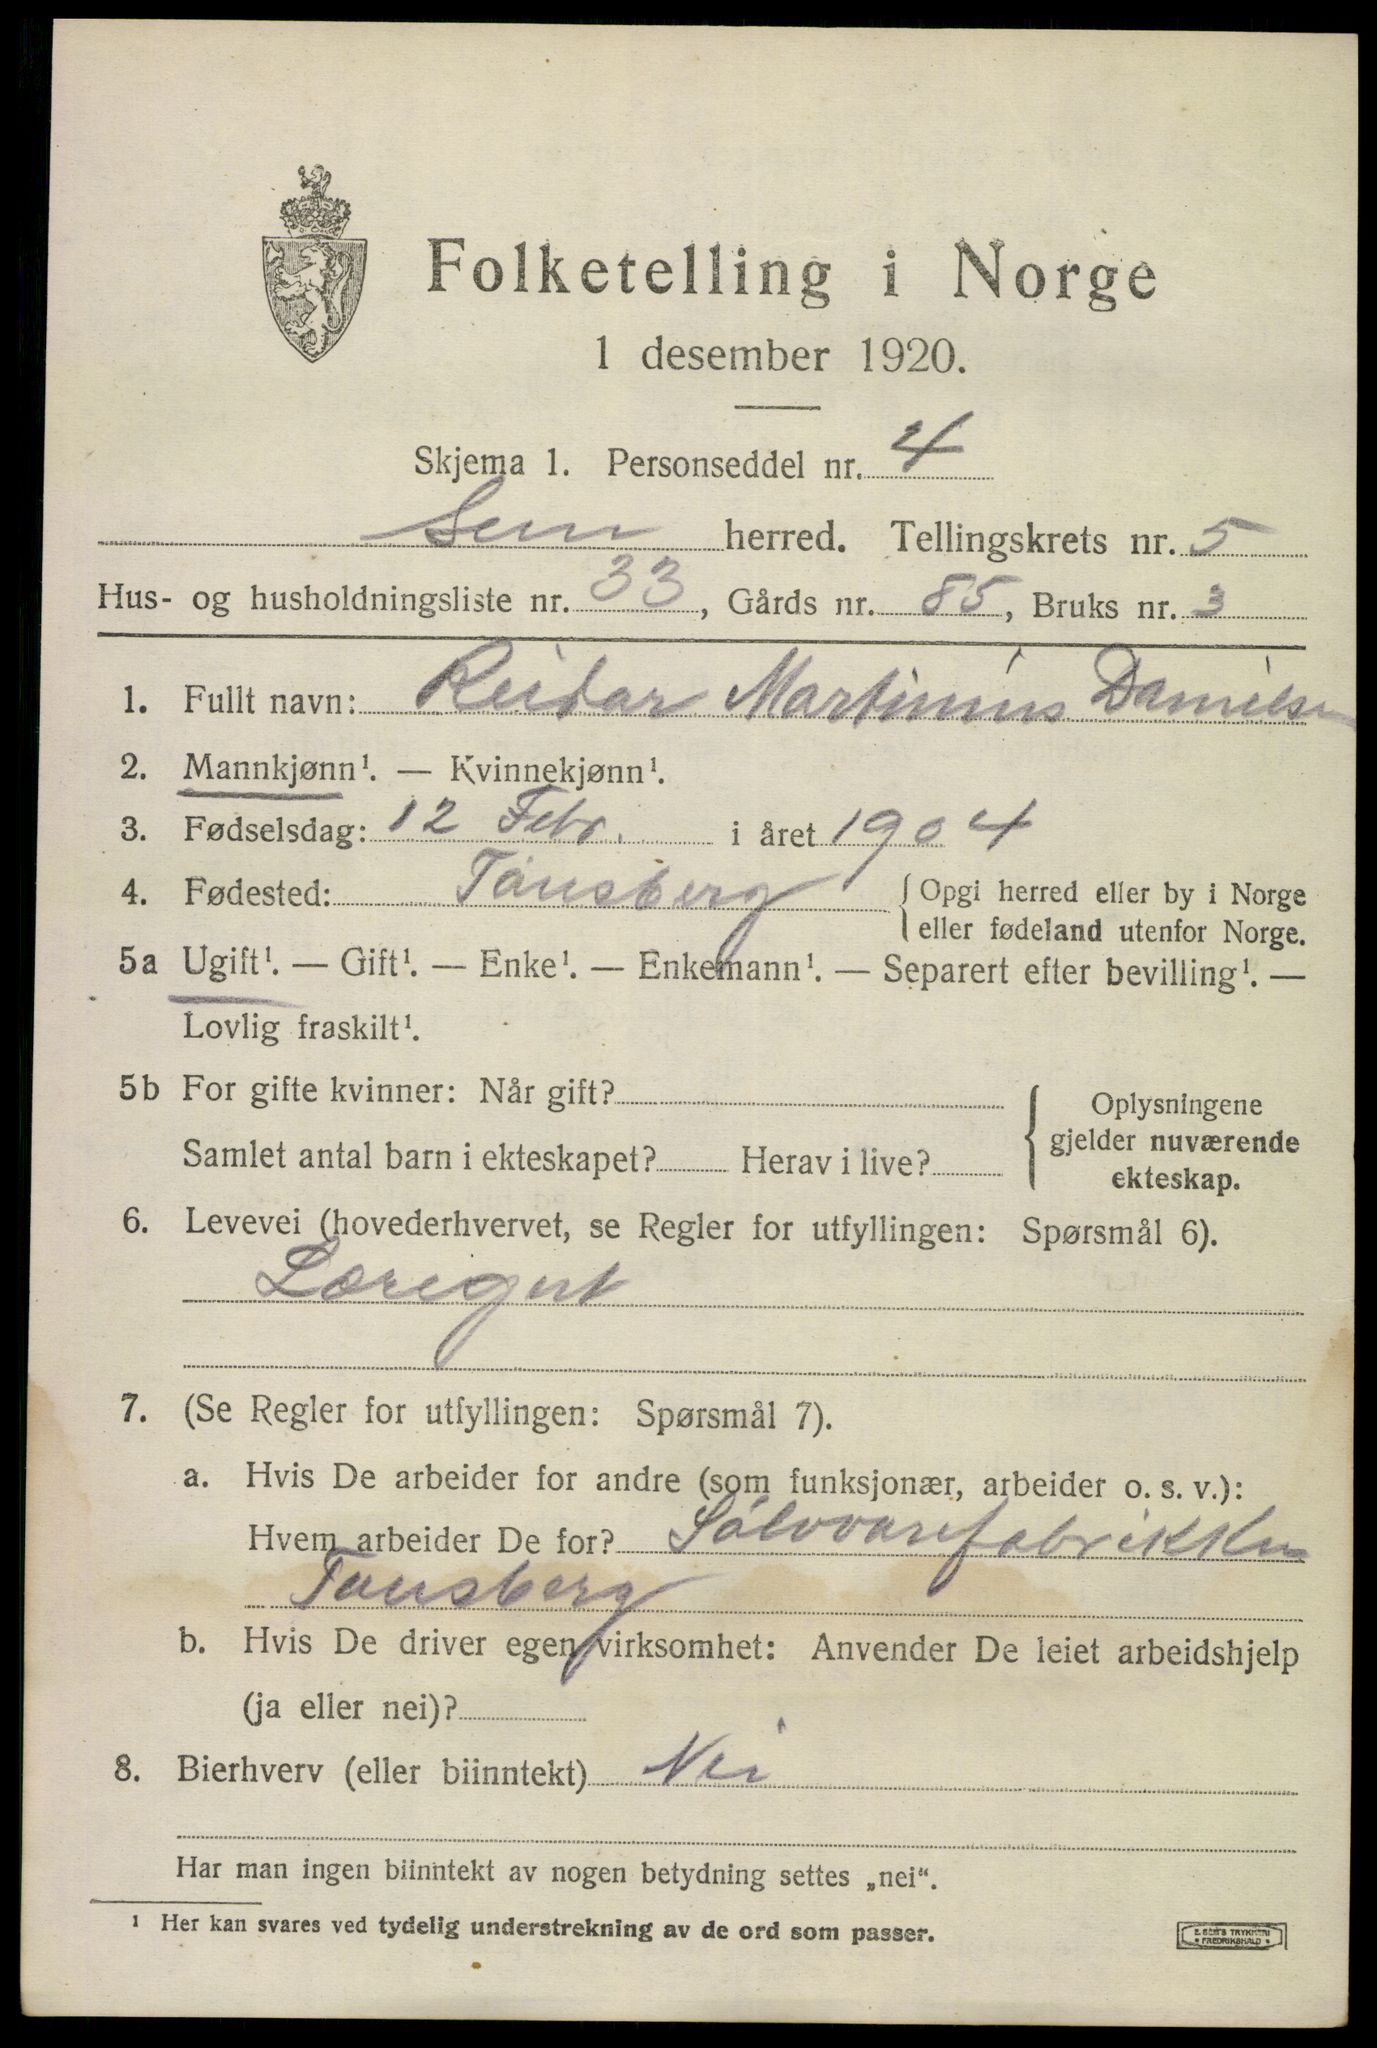 Folketelling i Norge
1 desember 1920.
Skjema 1. Personseddel nr. 4
Sem herred. Tellingskrets nr. 5
Hus- og husholdningsliste nr. 33, Gårds nr. 85, Bruks nr. 3
1. Fullt navn: Reidar Martinius Danielsen
2. Mannkjønn¹. — Kvinnekjønn¹.
3. Fødselsdag: 12 Febr. i året 1904
4. Fødested: Tønsberg { Opgi herred eller by i Norge
eller fødeland utenfor Norge.
5a Ugift¹. — Gift¹. — Enke¹. — Enkemann¹. — Separert efter bevilling¹. —
Lovlig fraskilt¹.
5b For gifte kvinner: Når gift? { Oplysningene
gjelder nuværende
Samlet antal barn i ekteskapet? Herav i live?
ekteskap.
6. Levevei (hovederhvervet, se Regler for utfyllingen: Spørsmål 6).
Læregut
7. (Se Regler for utfyllingen: Spørsmål 7).
a. Hvis De arbeider for andre (som funksjonær, arbeider o. s. v.):
Hvem arbeider De for? Sølvvarefabrikken
Tønsberg
b. Hvis De driver egen virksomhet: Anvender De leiet arbeidshjelp
(ja eller nei)?
8. Bierhverv (eller biinntekt) Nei
Har man ingen biinntekt av nogen betydning settes „nei“.
¹ Her kan svares ved tydelig understrekning av de ord som passer.
E. SEM'S TRYKKERI
• FREDRIKSHALD •